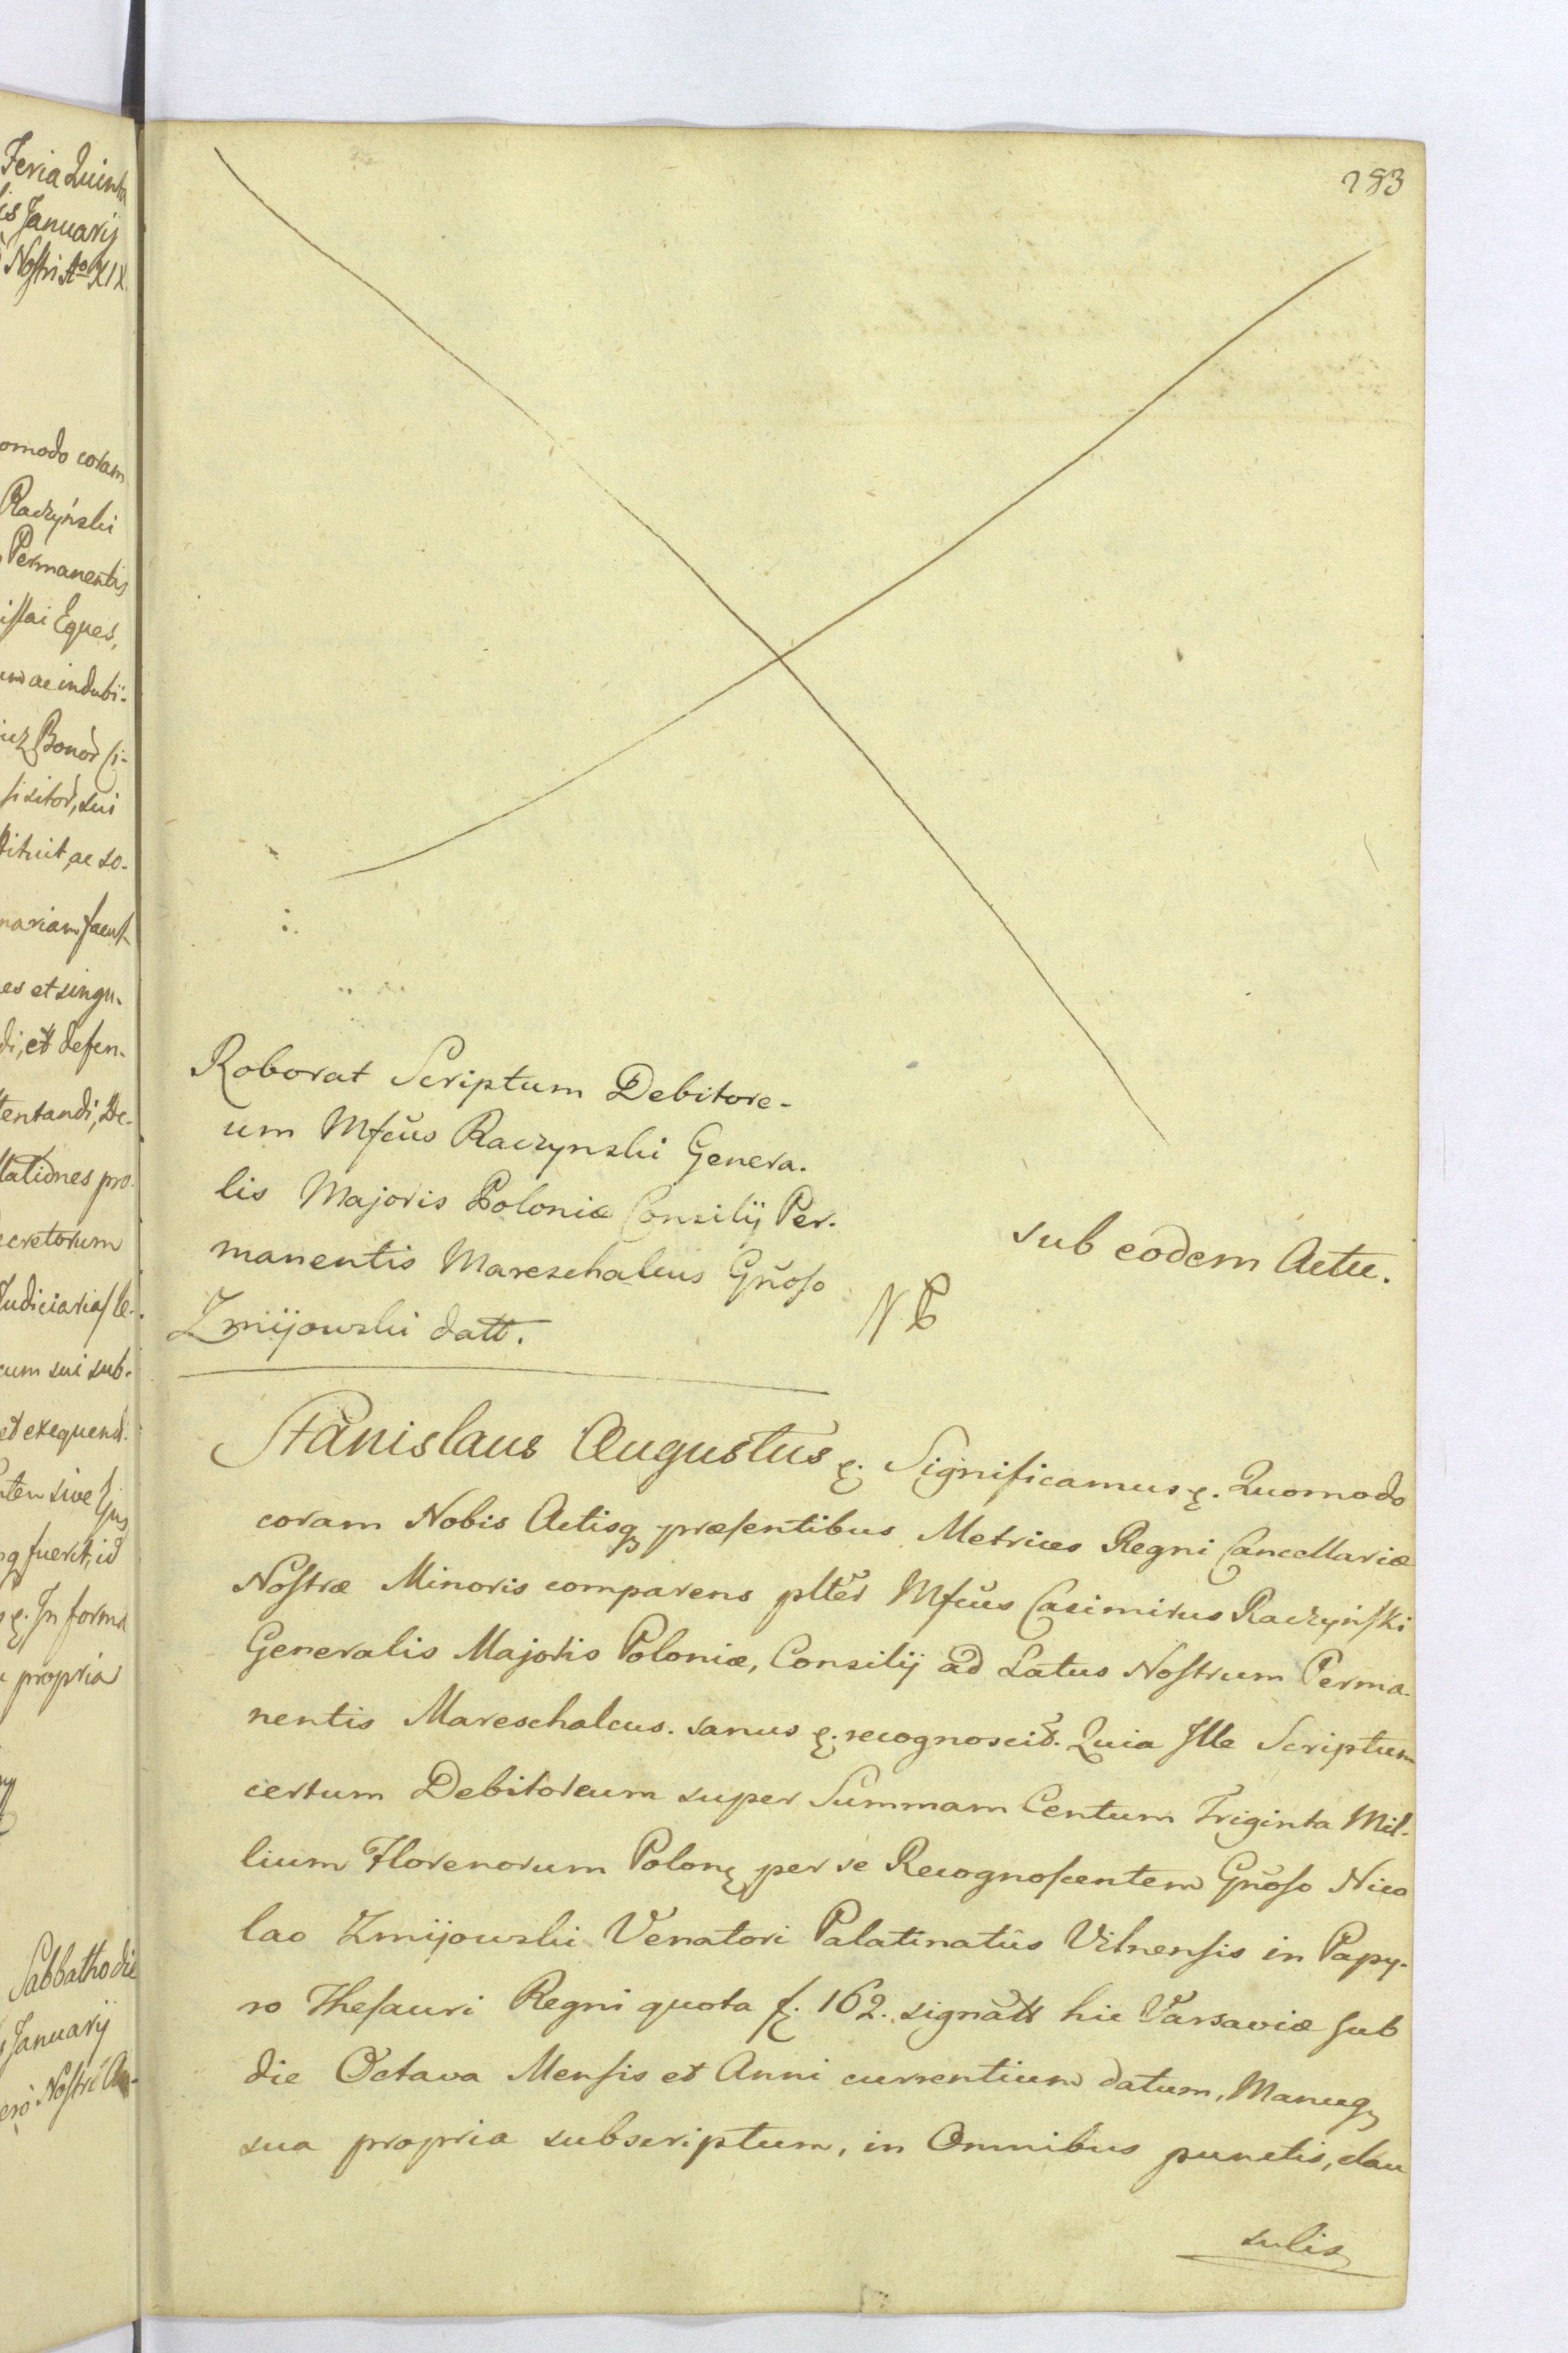 Feria Quinta
is Januarij
Nostri Aº XIX.
omodo coram
Raczyński
Permanentis
istai Eques,
um ac indubi-
Bonor Ci-
sisitor, sui
stituit, ac so-
nariam facult
es et singu-
di, et defen-
tentandi, De-
lationes pro-
ecretorum
Judiciarias le-
cum sui sub-
et exequend.
sive Ejus
q fuerit, id
In forma
propria
Sabbatho die
Januarij
ero Nostri An-
283
Roborat Scriptum Debitore-
um Mfcus Raczynski Genera-
lis Majoris Poloniæ Consilij Per-
manentis Mareschalcus Gnoso
Zmijowski datt.
sub eodem Actu.
NB
Stanislaus Augustus &. Significamus &. Quomodo
coram Nobis Actisq præsentibus Metrices Regni Cancellariæ
Nostræ Minoris comparens plter Mfcus Casimirus Raczyński
Generalis Majoris Poloniæ, Consilij ad Latus Nostrum Perma-
nentis Mareschalcus. sanus &. recognoscit. Quia Ille Scriptum
certum Debitoreum super Summam Centum Triginta Mil-
lium Florenorum Polon, per se Recognoscentem Gnoso Nico
lao Zmijowski Venatori Palatinatus Vilnensis in Papy-
ro Thesauri Regni quota f. 162. signatt hic Varsaviæ sub
die Octava Mensis et Anni currentium datum, Manuq
sua propria subscriptum, in Omnibus punctis, clau
sulis